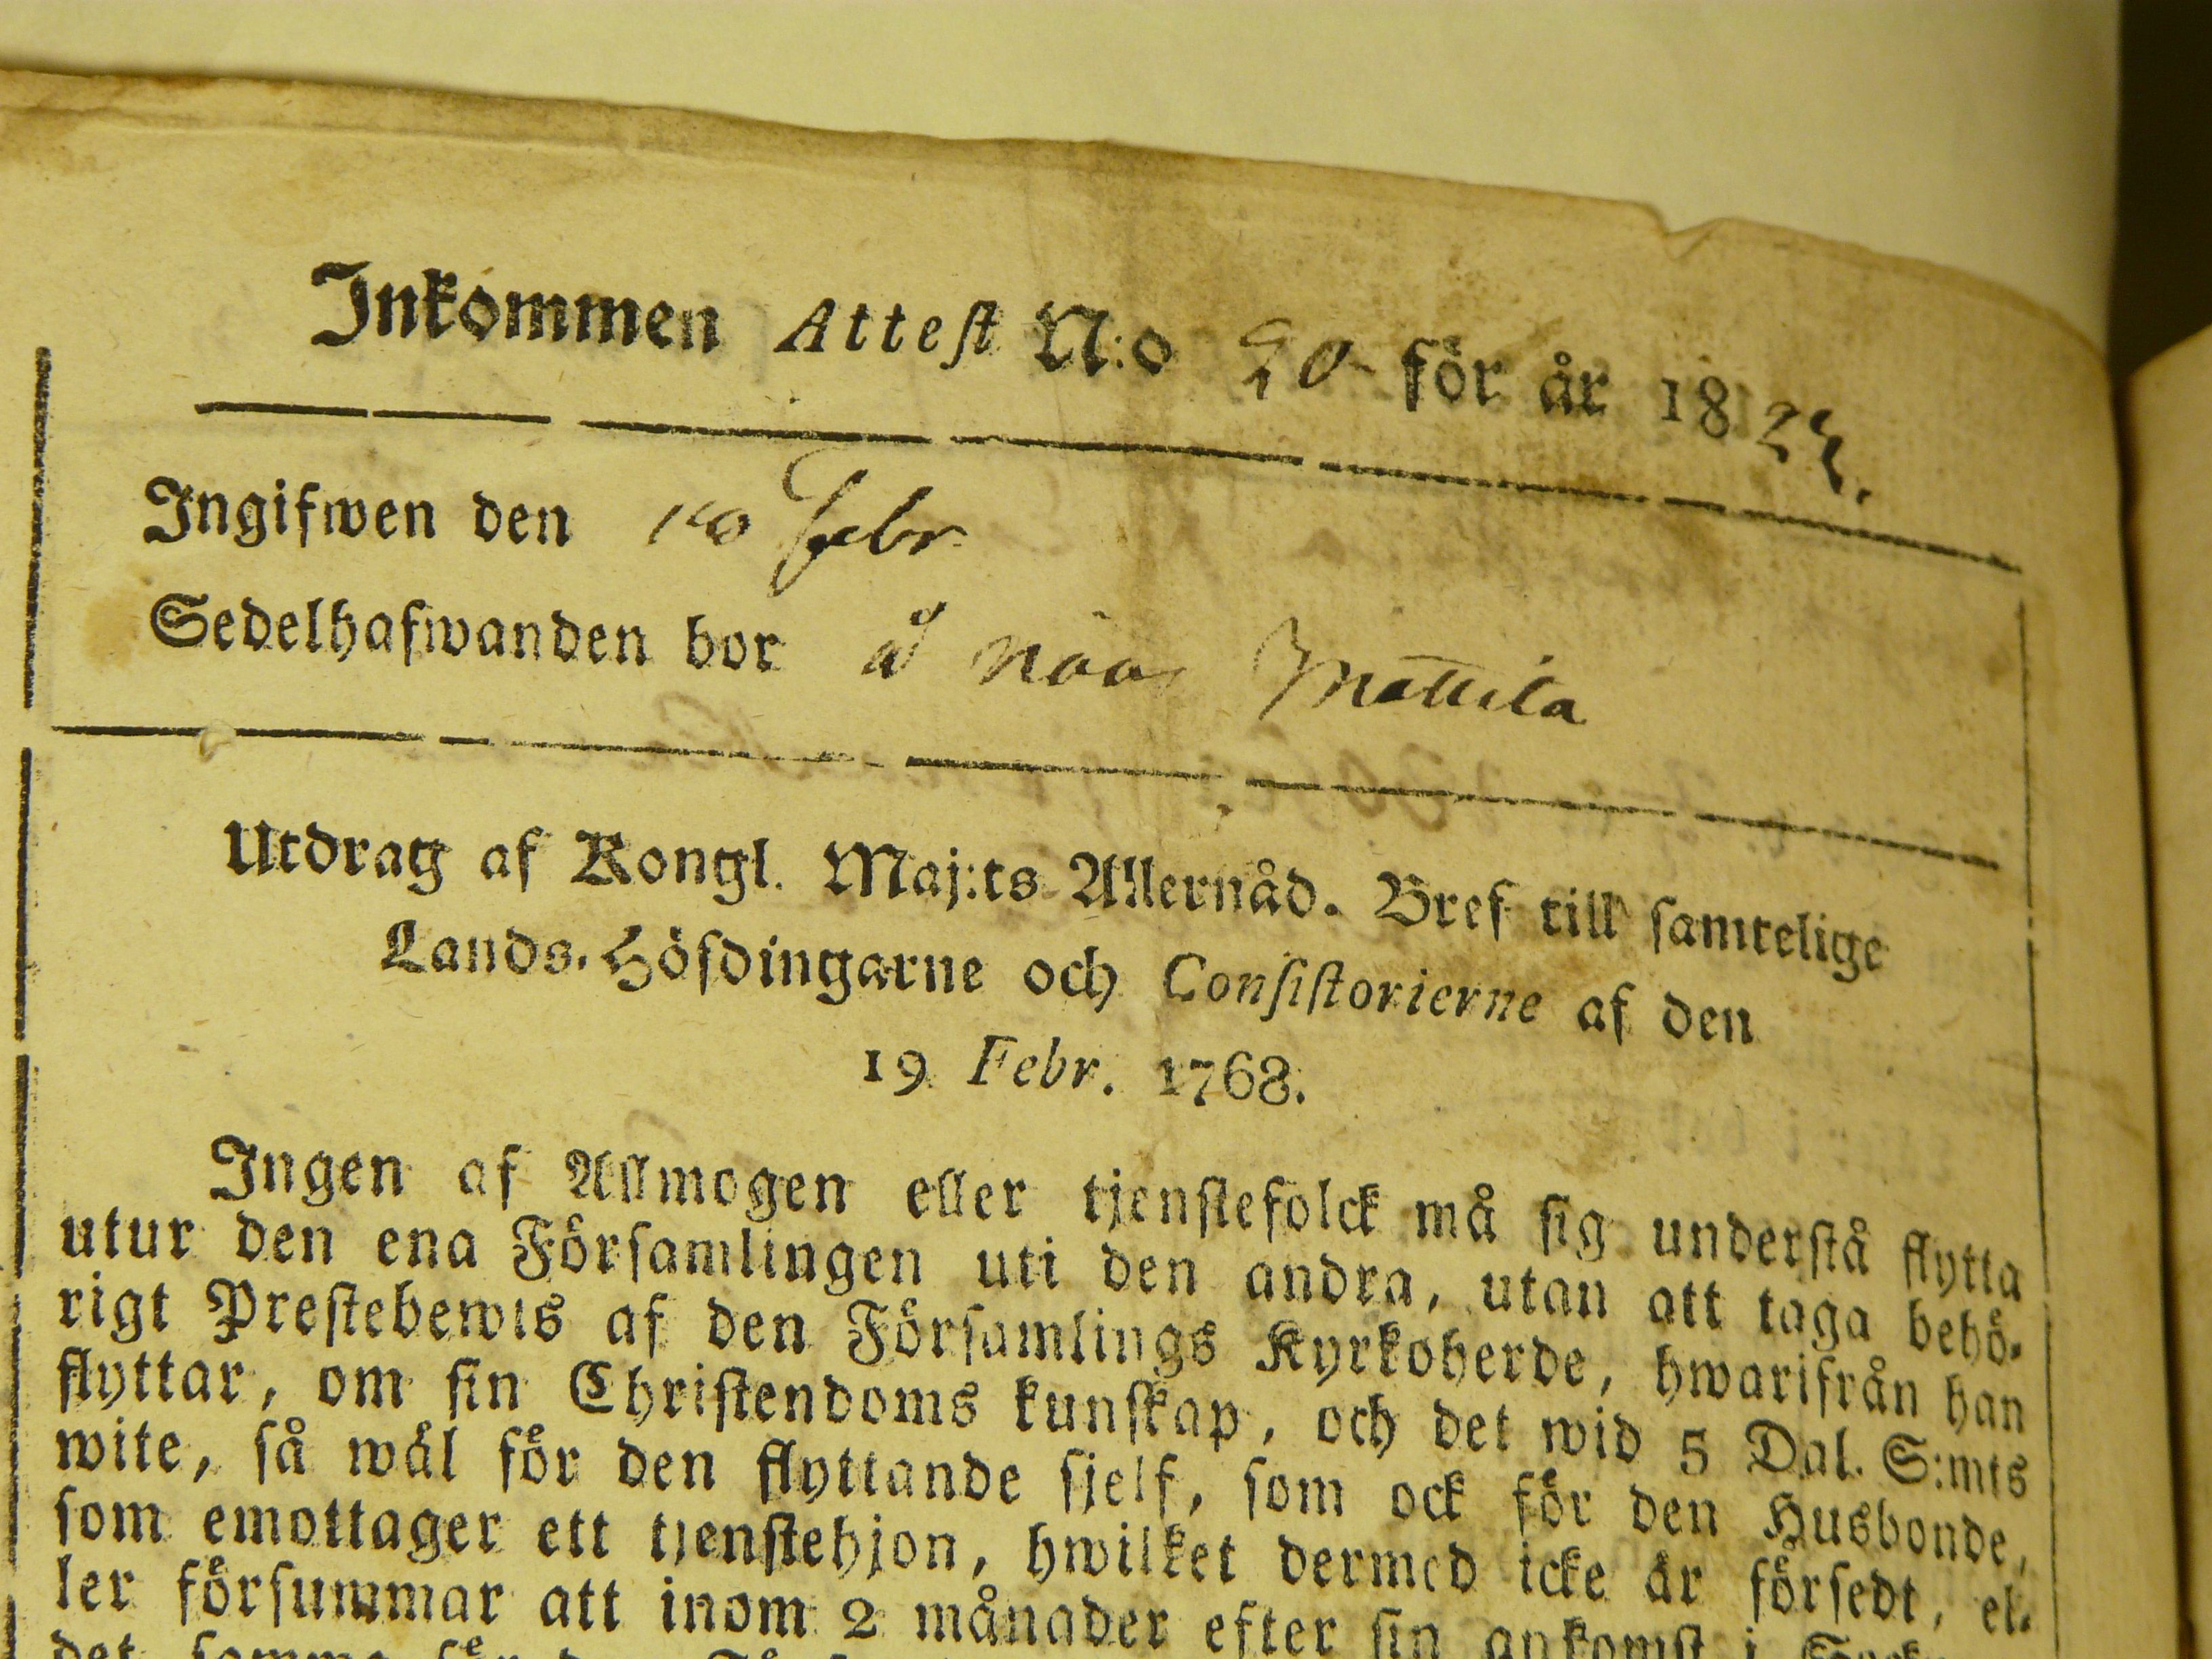 Inkommen Attest N:o 20 för år 182
Ingifwen den 10 Febr
Sedelhafwanden bor å Mattila
Utdrag af Kongl. Maj:ts Allernåd. Bref till samtelige
Lands-Höfdingarne och Consistorierne af den
19 Febr. 1768.
Ingen af Allmogen eller tjenstefolck må sig understå flytta
utur den ena Församlingen uti den andra, utan att taga behö-
rigt Prestebewis af den Församlings Kyrkoherde, hwarifrån han
flyttar, om sin Christendoms kunskap, och det wid 5 Dal. S:mts
wite, så wäl för den flyttande sjelf, som ock för den Husbonde,
som emottager ett tjenstehjon, hwilket dermed icke är försedt, el-
ler försummar att inom 2 månader efter sin ankomst i
det samma